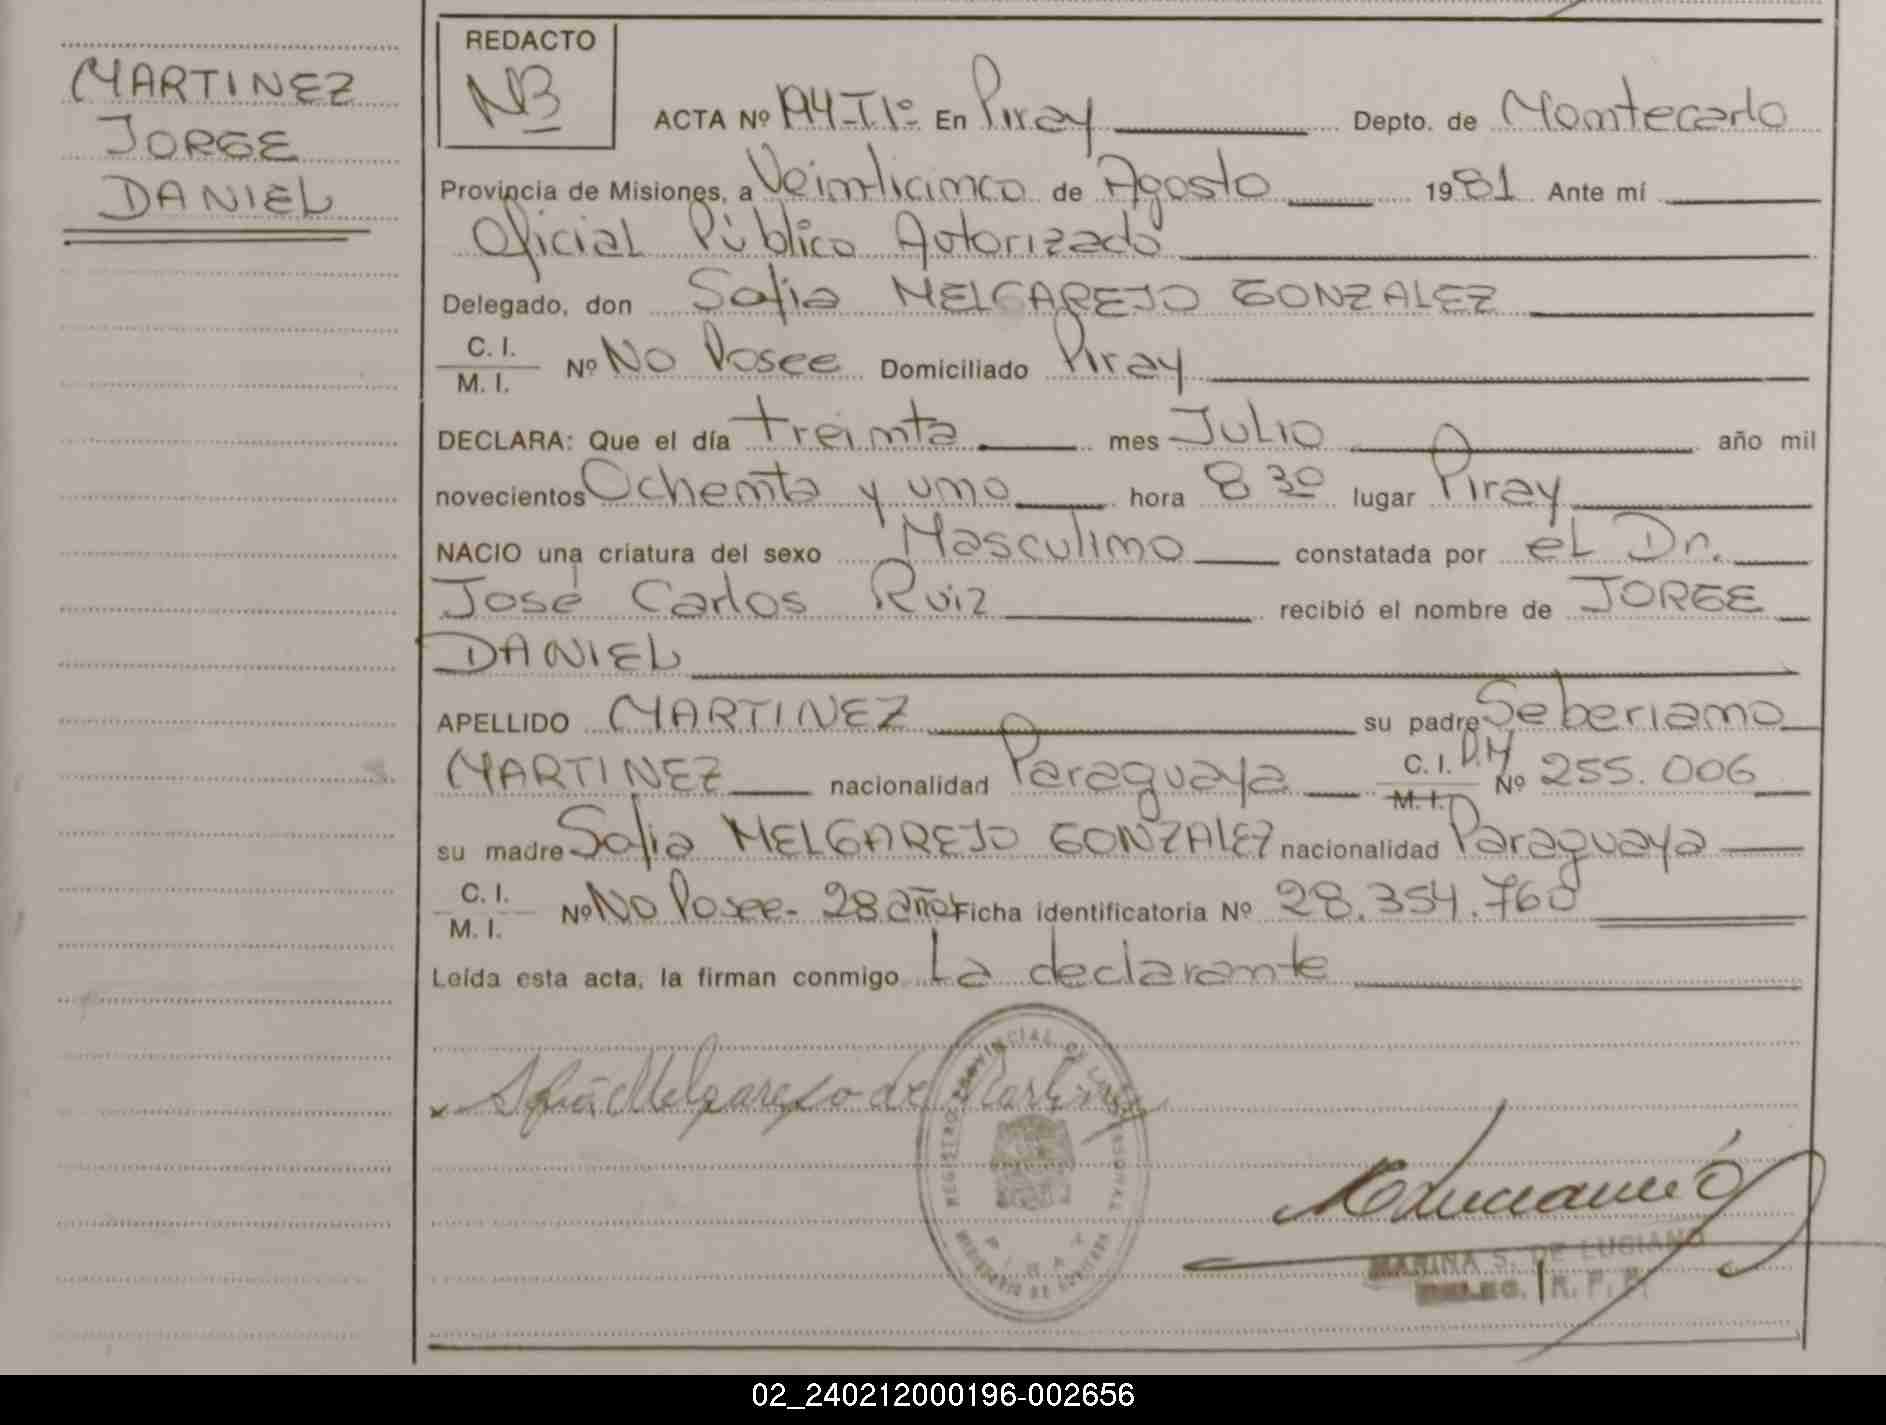 MARTINEZ
JORGE
DANIEL
REDACTO
NB
ACTA Nº 194-Iº En Piray Depto. de Montecarlo
Provincia de Misiones, a Veinticinco de Agosto 1981 Ante mí
Oficial Público Autorizado
Delegado, don Sofia MELGAREJO GONZALEZ
C. I.
M. I. Nº No Posee Domiciliado Piray
DECLARA: Que el día treinta mes Julio año mil
novecientos Ochenta y uno hora 8 30 lugar Piray
NACIO una criatura del sexo Masculino constatada por el Dr.
José Carlos Ruiz recibió el nombre de JORGE
DANIEL
APELLIDO MARTINEZ su padre Seberiano
MARTINEZ nacionalidad Paraguaya C. I. D.M
M. I. Nº 255.006
su madre Sofia MELGAREJO GONZALEZ nacionalidad Paraguaya
C. I.
M. I. Nº No Posee- 28 años Ficha identificatoria Nº 28.354.760
Leída esta acta, la firman conmigo La declarante
x Sofia Melgarejo de Martinez
REGISTRO PROVINCIAL DE LAS PERSONAS
PIRAY
MARINA S. DE LUCIANO
DELEG. R. P. P.
02_240212000196-002656